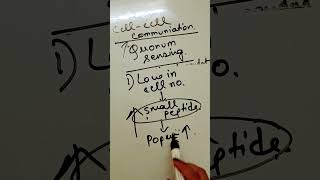 Cell-cell
communiation
↑ Quorum
sensing.
1) Low in
cell no.
↓
small
peptide
↓
Pop ↑
peptide